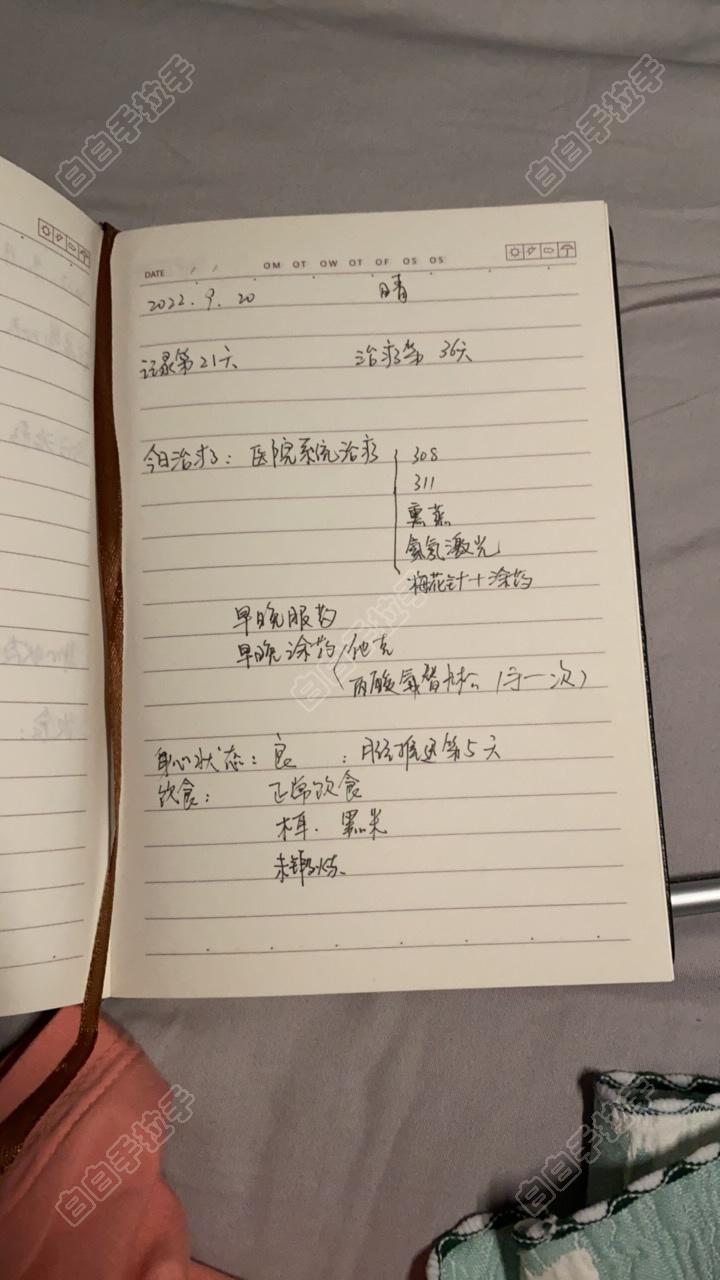 白白手拉手
白白手拉手
DATE / / OM OT OW OT OF OS OS
2022.9.20 晴
记录第21天 治疗第36天
今日治疗：医院系统治疗 308
311
熏蒸
氦氖激光
梅花针+涂药
早晚服药
早晚涂药 他克
白白手拉手
丙酸氟替卡松（守一次）
身心状态：良 ：月经推迟第5天
饮食：正常饮食
木耳、黑米
未锻炼
白白手拉手
白白手拉手